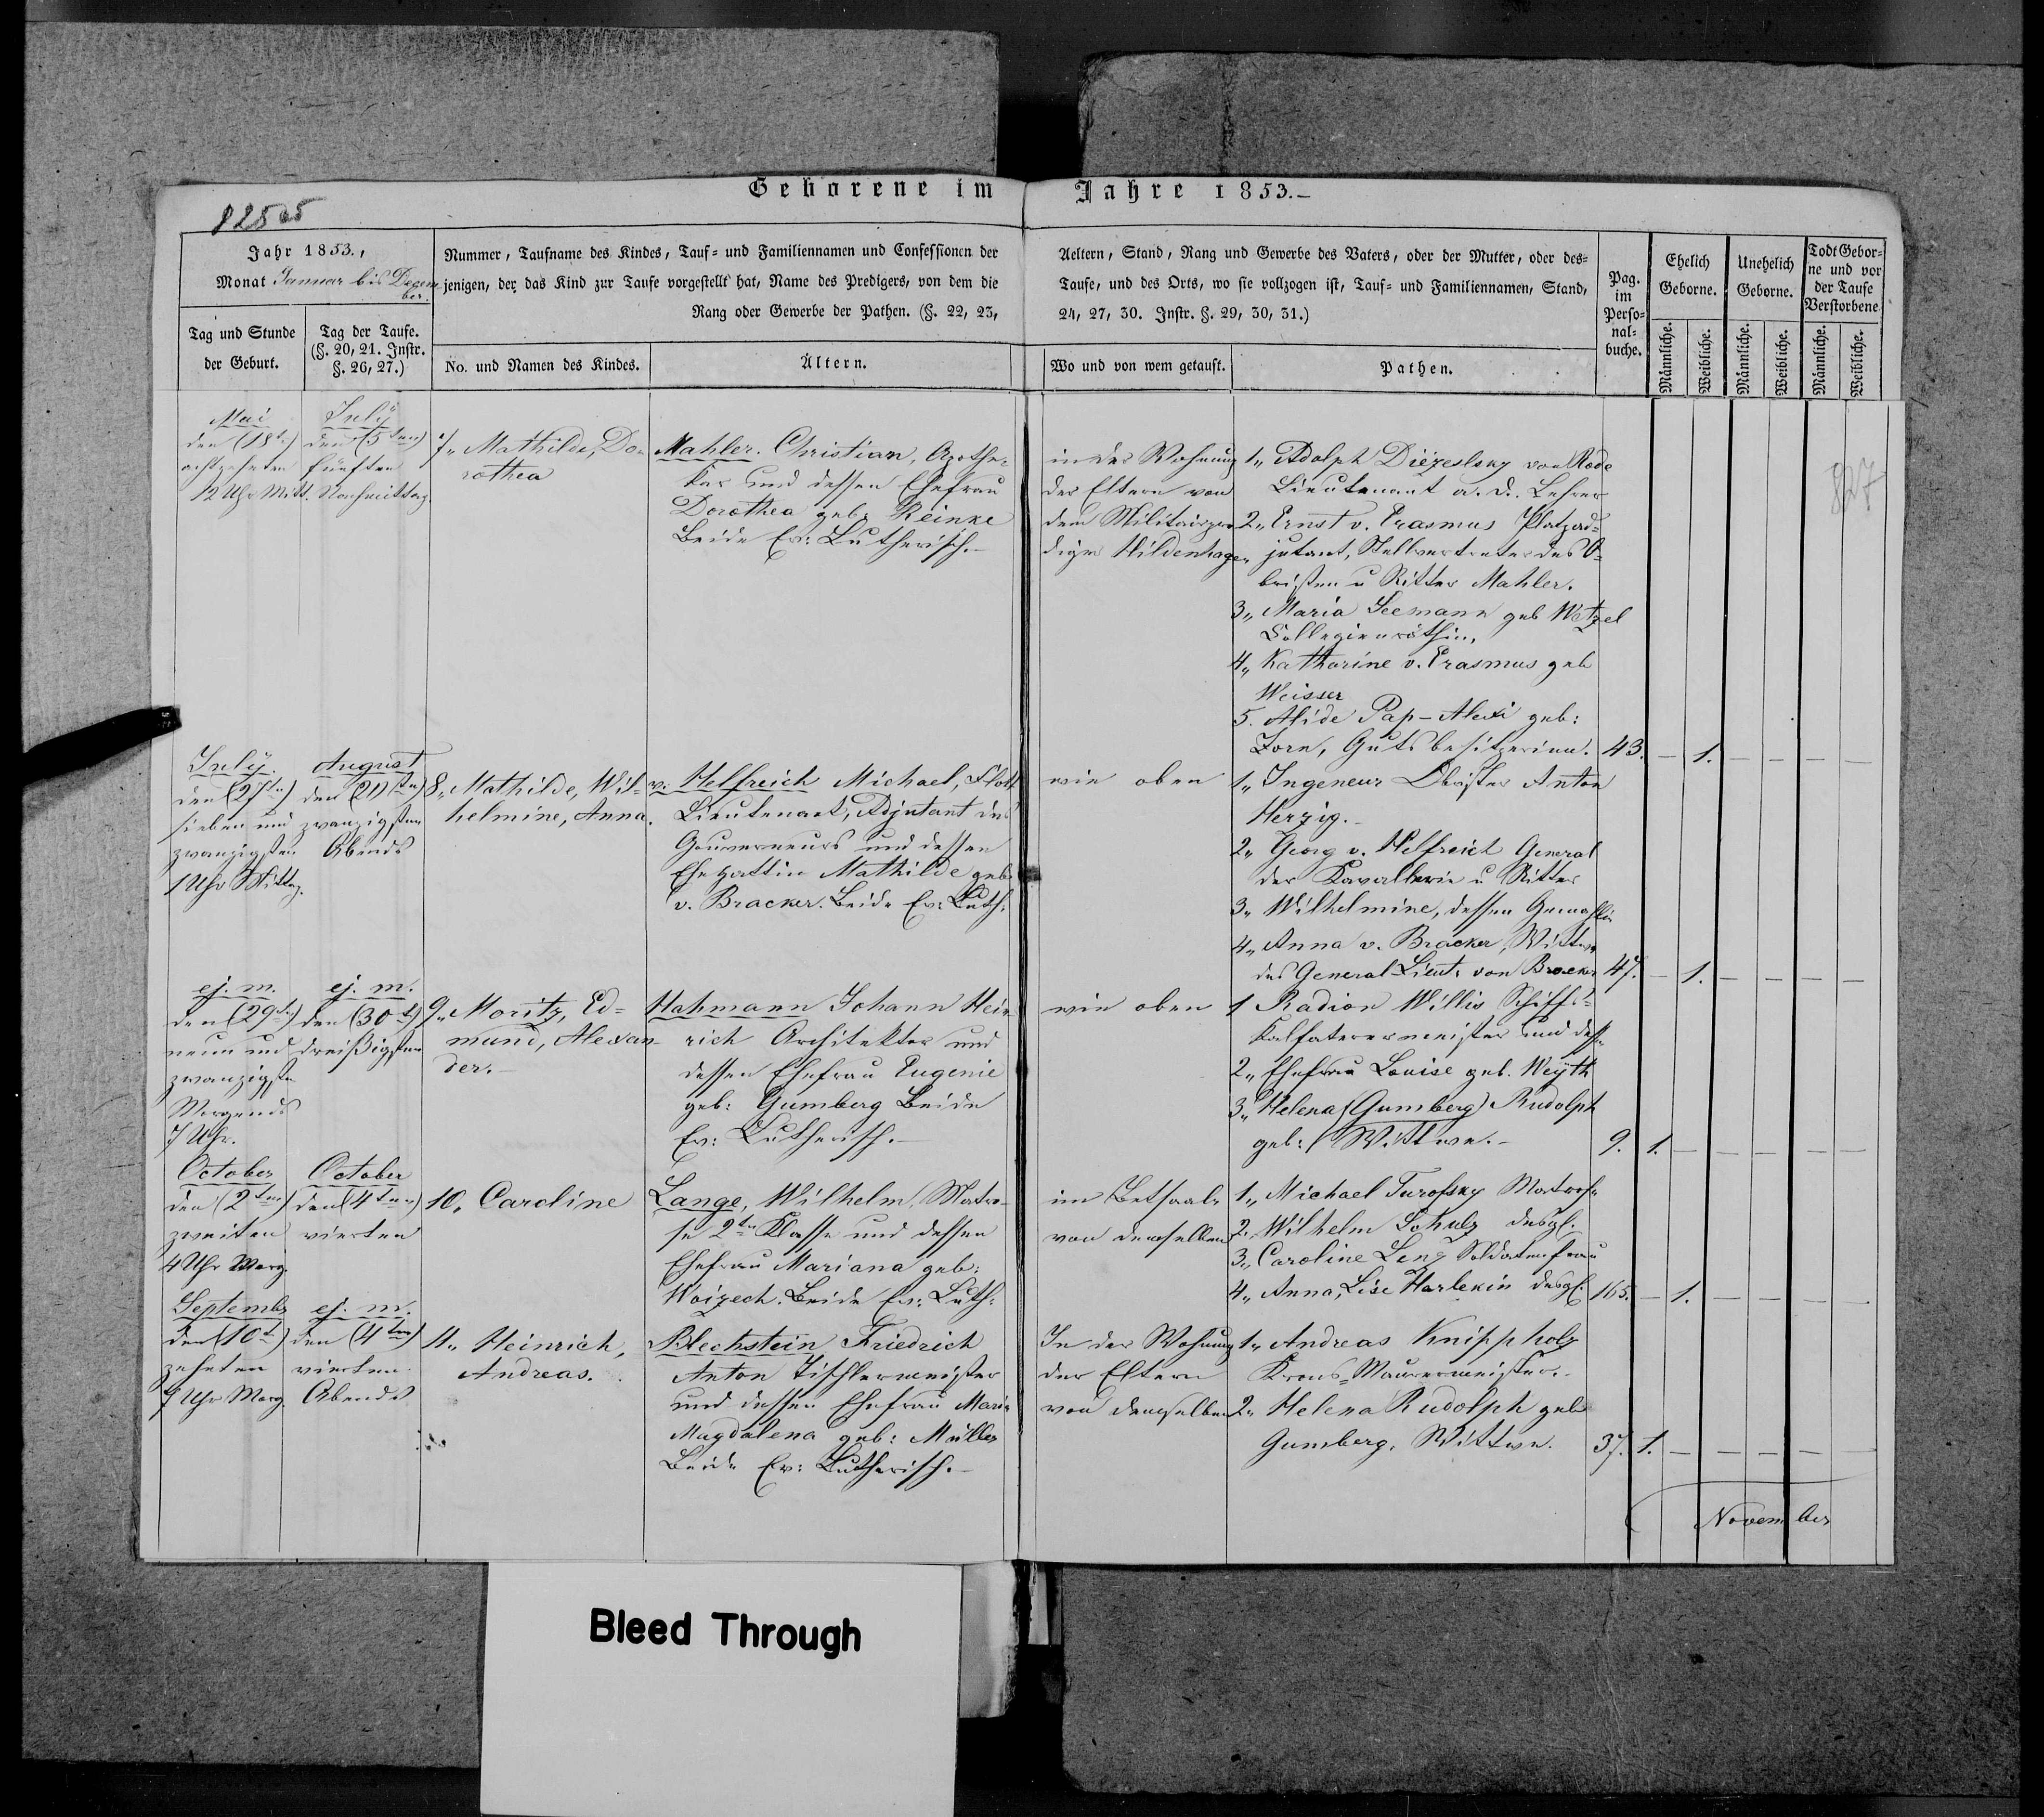 Geborene im Jahre 1853.-
825
Jahr 1853.,
Monat Januar bis Dezem-
ber.
Nummer, Taufname des Kindes, Tauf- und Familiennamen und Confessionen der
jenigen, der das Kind zur Taufe vorgestellt hat, Name des Predigers, von dem die
Rang oder Gewerbe der Pathen. (§. 22, 23,
Aeltern, Stand, Rang und Gewerbe des Vaters, oder der Mutter, oder des-
Taufe, und des Orts, wo sie vollzogen ist, Tauf- und Familiennamen, Stand,
24, 27, 30. Instr. §. 29, 30, 31.)
Pag.
im
Perso-
nal-
buche.
Ehelich
Geborne.
Unehelich
Geborne.
Todt Gebor-
ne und vor
der Taufe
Verstorbene
Tag und Stunde
der Geburt.
Tag der Taufe.
(§. 20, 21. Instr.
§. 26, 27.)
No. und Namen des Kindes.
Ältern.
Wo und von wem getauft.
Pathen.
Männliche.
Weibliche.
Männliche.
Weibliche.
Männliche.
Weibliche.
827
Mai
den (18t.)
achtzehnten
12 Uhr Mitt.
July
den (5ten)
fünften
Nachmittag
7,, Mathilde, Do-
rothea
Mahler. Christian, Apothe-
ker und dessen Ehefrau
Dorothea geb: Reinke
Beide Ev: Lutherisch.-
in der Wohnung
der Eltern von
dem Militairpre-
diger Hildenhagen
1,, Adolph Diezeslsky von Rode
Lieutenant a. d. Lehrer
2,, Ernst v. Erasmus Platzad-
jutant, Stellvertreter des O-
bristen u Ritter Mahler.
3,, Maria Seemann geb Wetzel
Collegienräthin,
4,, Katharine v. Erasmus geb
Weisser
5. Alide Pap-Alexi geb:
Zorn, Gutsbesitzerinn.
43. - 1. - - - -
July.
den (27t.)
sieben und
zwanzigsten
1 Uhr Mittag.
August
den (20ten)
zwanzigsten
Abends
8,, Mathilde, Wil-
helmine, Anna.
v. Helfreich Michael, Flott
Lieutenant, Adjutant des
Gouverneurs und dessen
Ehegattin Mathilde geb:
v. Bracker. Beide Ev: Luth:
wie oben
1,, Ingeneur Obrister Anton
Herzig.-
2,, Georg v. Helfreich General
der Kavallerie u Ritter
3,, Wilhelmine, dessen Gemahlin
4,, Anna v. Bracker, Wittwe
des General-Lieut: von Bracker
47. - 1. - - - -
ej. m.
den (29t.)
neun und
zwanzigsten
Morgends
7 Uhr.
ej. m.
den (30t)
dreißigsten
9,, Moritz, Ed-
mund, Alexan-
der.-
Hahmann Johann Hein-
rich Architekter und
dessen Ehefrau Eugenie
geb: Gumberg Beide
Ev: Lutherisch.-
wie oben
1 Radion Willis Schiffs-
Kalfaterermeister und dess
2,, Ehefrau Louise geb. Weyth
3,, Helena (Gumberg) Rudolph
geb: Wittwe.-
9. 1. - - - - -
October
den (2ten)
zweiten
4 Uhr Morg.
October
den (4ten)
vierten
10. Caroline
Lange, Wilhelm, Matro-
se 2ten Klasse und dessen
Ehefrau Mariana geb:
Woizech. Beide Ev: Luth:
im Betsaale
von demselben
1,, Michael Turofsky Matrose
2. Wilhelm Schulz desgl.
3,, Caroline Leng Soldatenfrau
4,, Anna, Lise Harlekin desgl.
165. - 1. - - - -
Septembr
den (10t)
zehnten
7 Uhr Morg.
ej. m.
den (4ten)
vierten
Abends
11,, Heinrich,
Andreas.
Blechstein Friedrich
Anton Tischlermeister
und dessen Ehefrau Maria
Magdalena geb: Müller
Beide Ev: Lutherisch.-
In der Wohnung
der Eltern
von demselben
1,, Andreas Knippholz
Krons-Maurermeister.-
2,, Helena Rudolph geb
Gumberg, Wittwe.
37. 1. - - - - -
November
Bleed Through